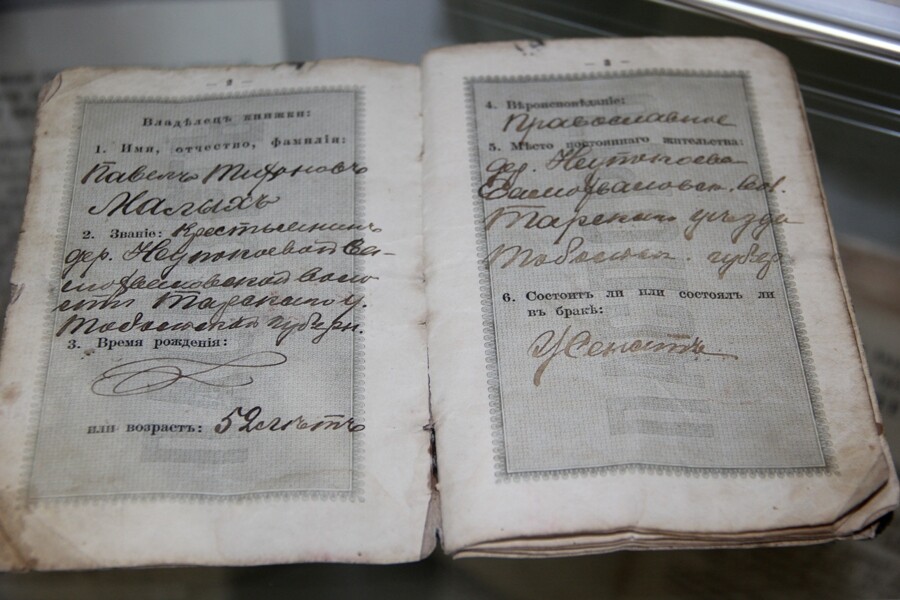 — 2 —
Владѣлецъ книжки:
1. Имя, отчество, фамилія:
Павелъ Тифоновъ
Малыхъ
2. Званіе: Крестьянинъ
дер. Неупокоевой Са-
мохваловской воло
сти Тарскаго у.
Тобольской губерн.
3. Время рожденія:
или возрастъ: 52 лѣтъ
— 3 —
4. Вѣроисповѣданіе:
Православное
5. Мѣсто постояннаго жительства:
дер. Неупокоева
Самохваловск. вол.
Тарскаго уѣзда
Тобольск. губер
6. Состоитъ ли или состоялъ ли
въ бракѣ:
Женатъ